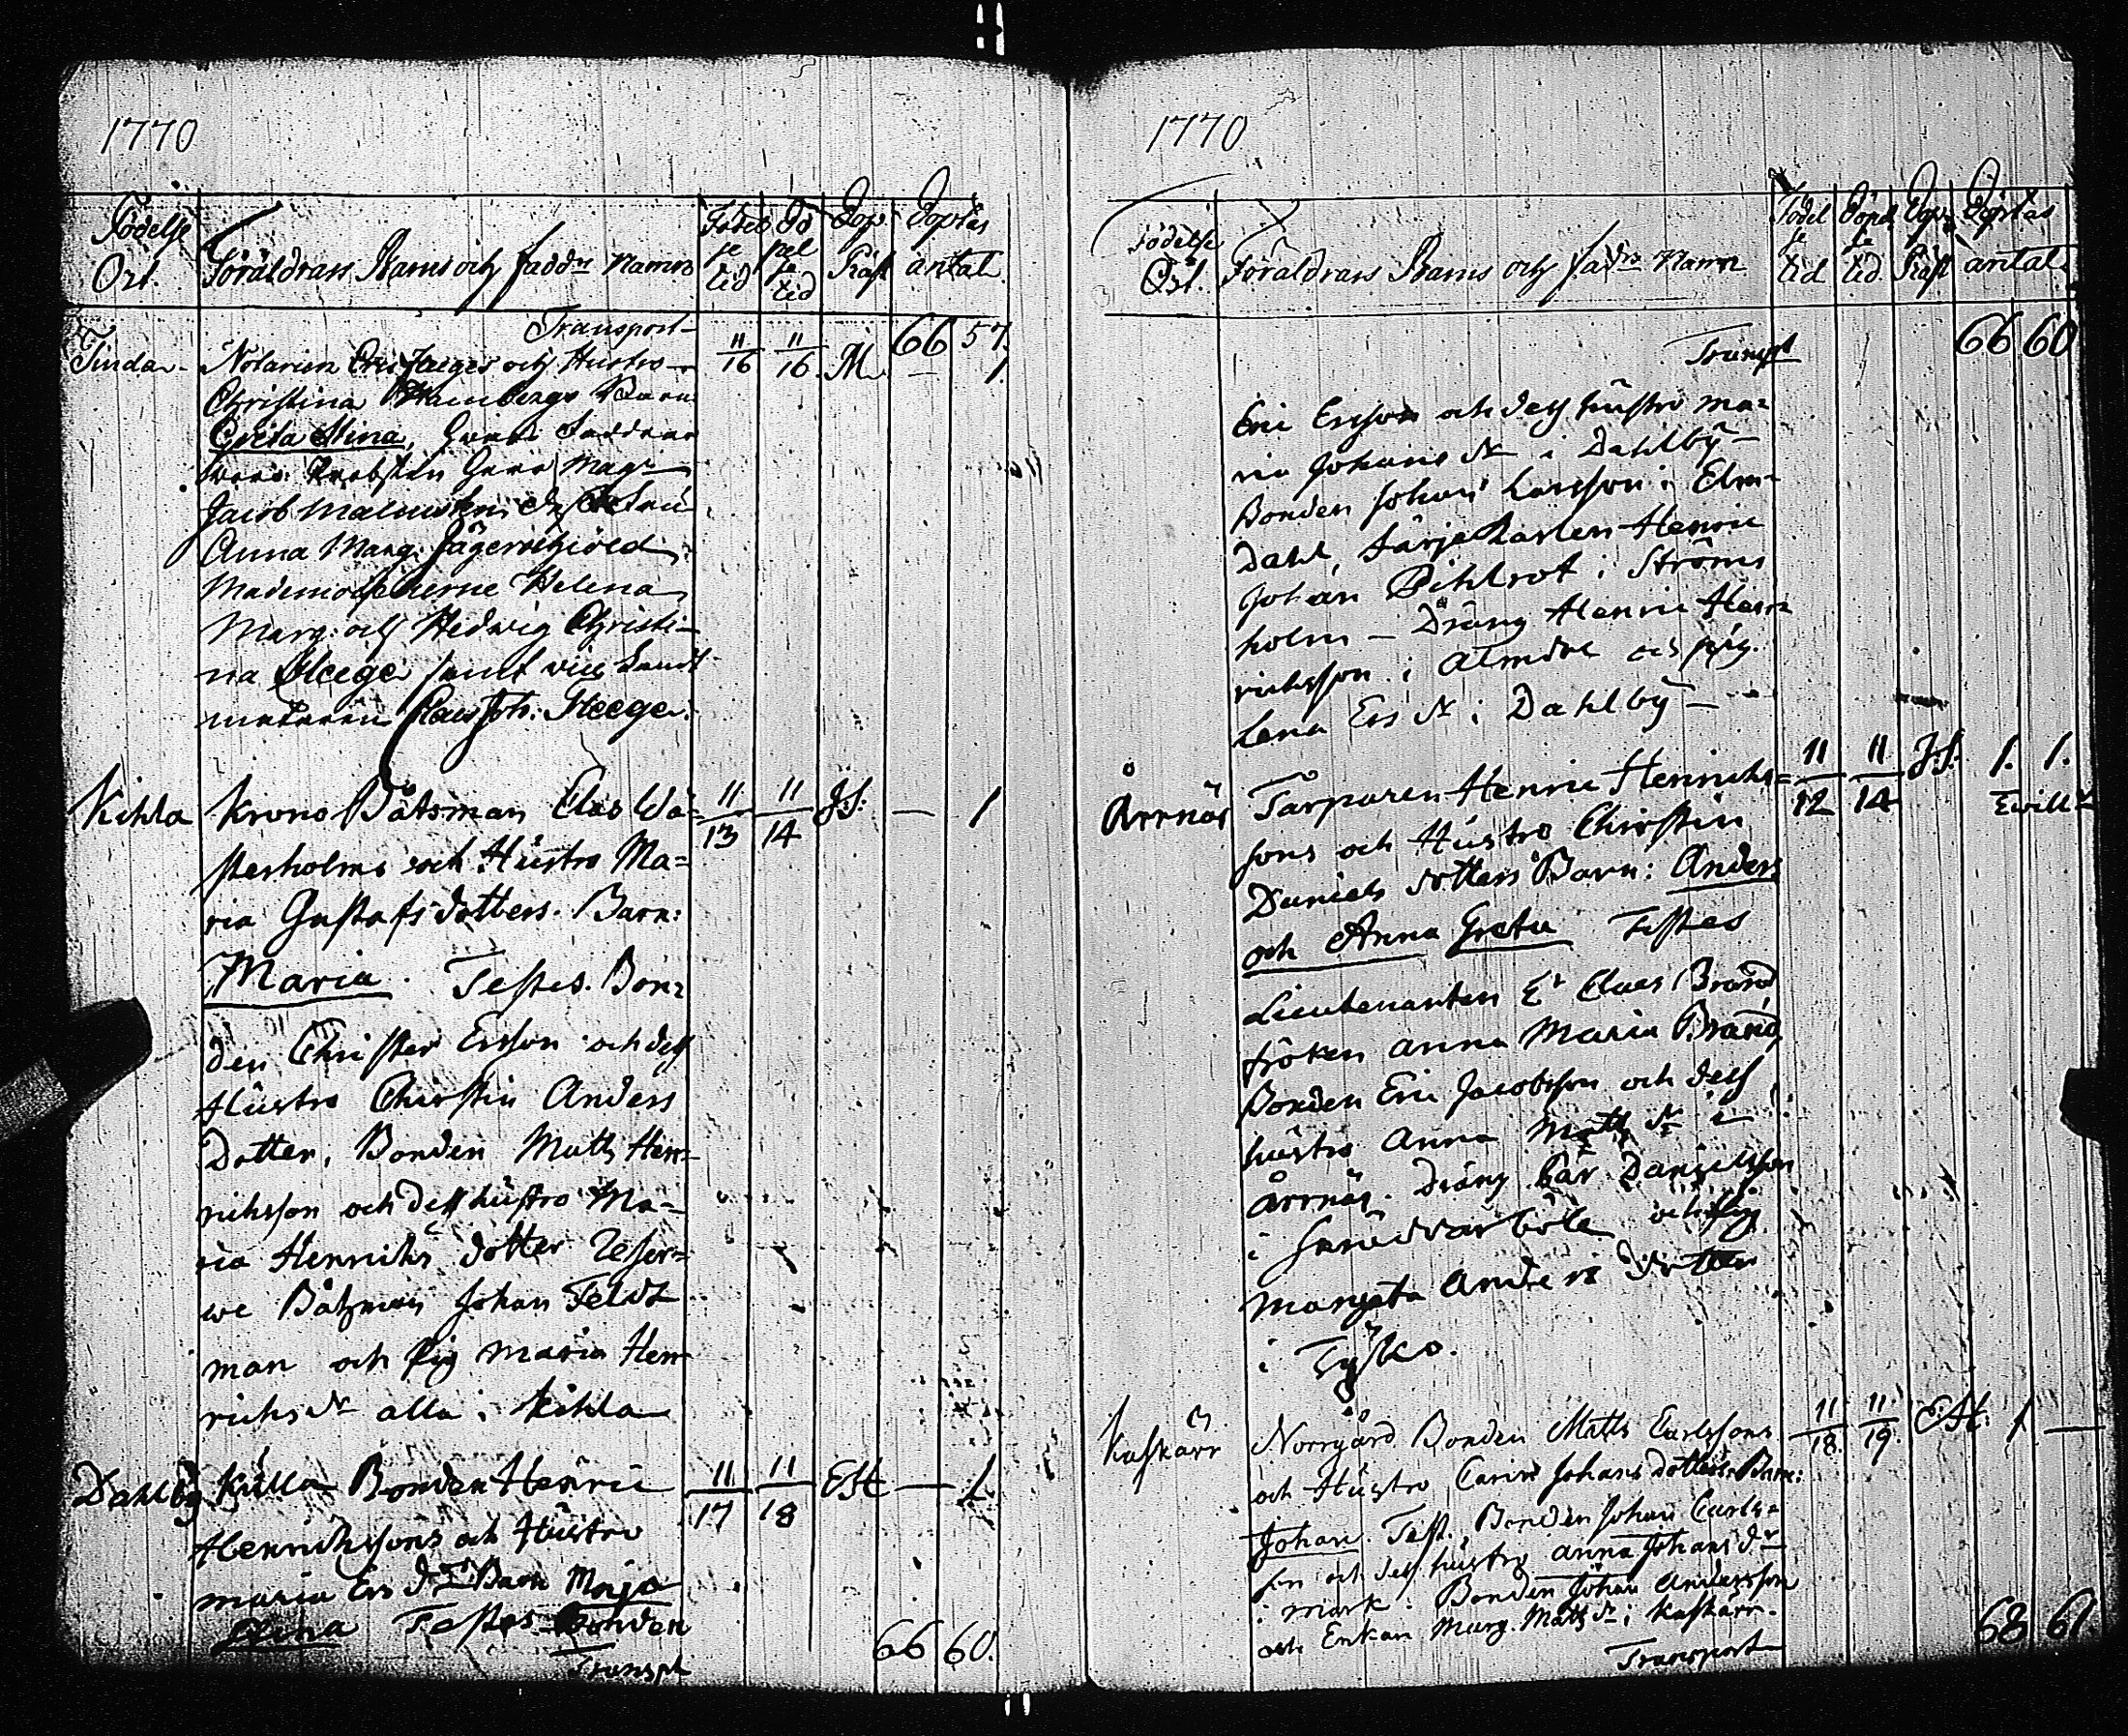 1770
Födelse Ort.
Föräldrars Barns och faddrs Namn
Födel se tid
Dö pel se tid
Dop. Präst
Döptas antal
Transport 66 57.
Tinda Notarien Eric och Hustro 11/16 11/16. M. — 1.
Christina Barn
Greta Stina,
Probsten Mag:r
Jacob
Anna Marg. Jägerschiöld
Mademoisellerne Helena
Marg: och Hedwig Christi-
na Heege samt vice Landt
Claes Joh: Heege.
Kihla Krono Båtsman Clas Wä= 11/13 11/14 J:S: — 1
sterholms och Hustro Ma=
ria Gustafs dotters. Barn:
Maria. Testes. Bon=
den Christer Ersson och dess
Hustro Christin Anders
Dotter, Bonden Matts Hen=
richsson och dess hustro Ma=
ria Henrichs dotter Reser=
we Båtzman Johan Feldt
man och Pig Maria Hen
richs dr alla i Kihla
Dahlby Kulla Bonden Henric 11/17 11/18 EH — 1.
Henrichssons och Hustro
Maria Ers dr Barn Maja
Stina Testes Bonden
Transpt 66 60.
1770
Födelse Ort.
Föräldrars Barns och fadrs Namn
Födel se tid
Döpel se tid.
Dop. Präst
Döptas antal.
Transpt 66 60
Eric Ersson och dess hustro Ma=
ria Johans dr i Dahlby —
Bonden Johan Larsson i Elm=
dahl, Färje Karlen Henric
Johan Pihlrot i Ströms
holm — Dräng Henric Hen
richsson i och pig.
Lena Ers dr i Dahlby —
Årrnäs Tårparen Henric Henrichs= 11/12 11/14 J:S: 1. 1.
sons och Hustro Christin Twill
Daniels dotters Barn: Anders
och Anna Greta Testes
Lieutenanten Claes Brand
fröken Anna Maria Brand,
Bonden Eric Jacobsson och dess
hustro Anna Matts dr i
Årrnäs. Dräng Pär Danielsson
i Sundvarböle och Pig
Margeta Anders dotter
i Tysko.
Kaskärr Norrgård Bonden Matts Carlssons 11/18. 11/19. EH. 1. —
och Hustro Carin Johans dotters Barn:
Johan. Test. Bonden Johan Carls=
son och dess hustro Anna Johans dr
i Mark. Bonden Johan Andersson
och Enkan Marg. Matts dr i Kaskärr.
Transport 68 61.